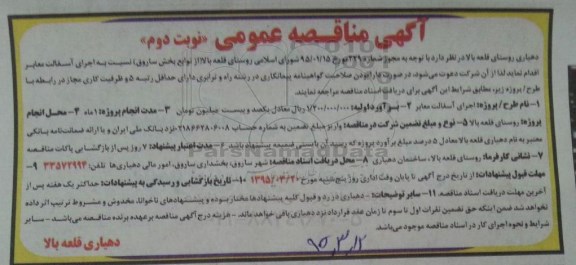 آگهی مناقصه عمومی «نوبت دوم»
دهیاری روستای قلعه بالا در نظر دارد با توجه به مجوز شماره ۲۴۹ مورخ ۹۵/۰۱/۱۵ شورای اسلامی روستای قلعه بالا (از توابع بخش ساروق) نسبت به اجرای آسفالت معابر
اقدام نماید لذا از آن شرکت دعوت می‌شود، در صورت دارا بودن صلاحیت گواهینامه پیمانکاری در رشته راه و ترابری دارای حداقل رتبه ۵ و ظرفیت کاری مجاز در رابطه با
طرح / پروژه زیر، مطابق شرایط این آگهی برای دریافت اسناد مناقصه مراجعه نمایند.
۱- نام طرح / پروژه: اجرای آسفالت معابر ۲- برآورد اولیه: ۱/۲۰۰/۰۰۰/۰۰۰ ریال معادل یکصد و بیست میلیون تومان ۳- مدت انجام پروژه: ۱ ماه ۴- محل انجام
پروژه: روستای قلعه بالا ۵- نوع و مبلغ تضمین شرکت در مناقصه: واریز مبلغ تضمین به شماره حساب نزد بانک ملی ایران و یا ارائه ضمانت‌نامه بانکی
معتبر به نام دهیاری قلعه بالا معادل ۵ درصد مبلغ برآورد پروژه که مدت اعتبار آن بایستی ضمیمه پیشنهاد باشد مدت اعتبار پیشنهاد: ۷ روز پس از بازگشایی پاکات مناقصه
۷- نشانی کارفرما: روستای قلعه بالا، ساختمان دهیاری ۸- محل دریافت اسناد مناقصه: شهر ساروق، بخشداری ساروق، امور مالی دهیاری‌ها تلفن: ۳۳۵۷۲۹۹۴ ۹-
مهلت قبول پیشنهادات: از تاریخ درج آگهی تا پایان وقت اداری روز پنج‌شنبه مورخ ۱۳۹۵/۰۳/۲۰ ۱۰- تاریخ بازگشایی و رسیدگی به پیشنهادات: حداکثر یک هفته پس از
آخرین مهلت دریافت اسناد مناقصه. ۱۱- سایر توضیحات: - دهیاری در رد و قبول کلیه پیشنهادها مختار بوده و پیشنهادهای ناخوانا، مخدوش و مشروط ترتیب اثر داده
نخواهد شد ضمن اینکه حق تضمین نفرات اول تا سوم تا زمان عقد قرارداد نزد دهیاری باقی خواهد ماند. - هزینه درج آگهی مناقصه بر عهده برنده مناقصه می‌باشد - سایر
شرایط و نحوه اجرای کار در اسناد مناقصه موجود می‌باشد.
دهیاری قلعه بالا
۹۵,۳,۱۲
ParsNamadData